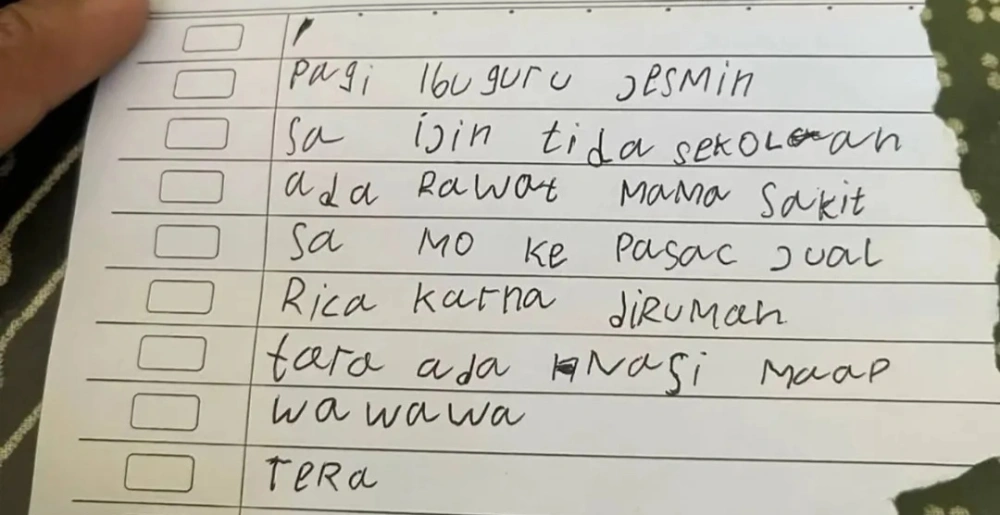 Pagi Ibu guru Jesmin
Sa ijin tida sekolaan
ada Rawat Mama Sakit
Sa MO Ke Pasar Jual
Rica Karna diRumah
tara ada Nasi Maap
wawawa
TeRa